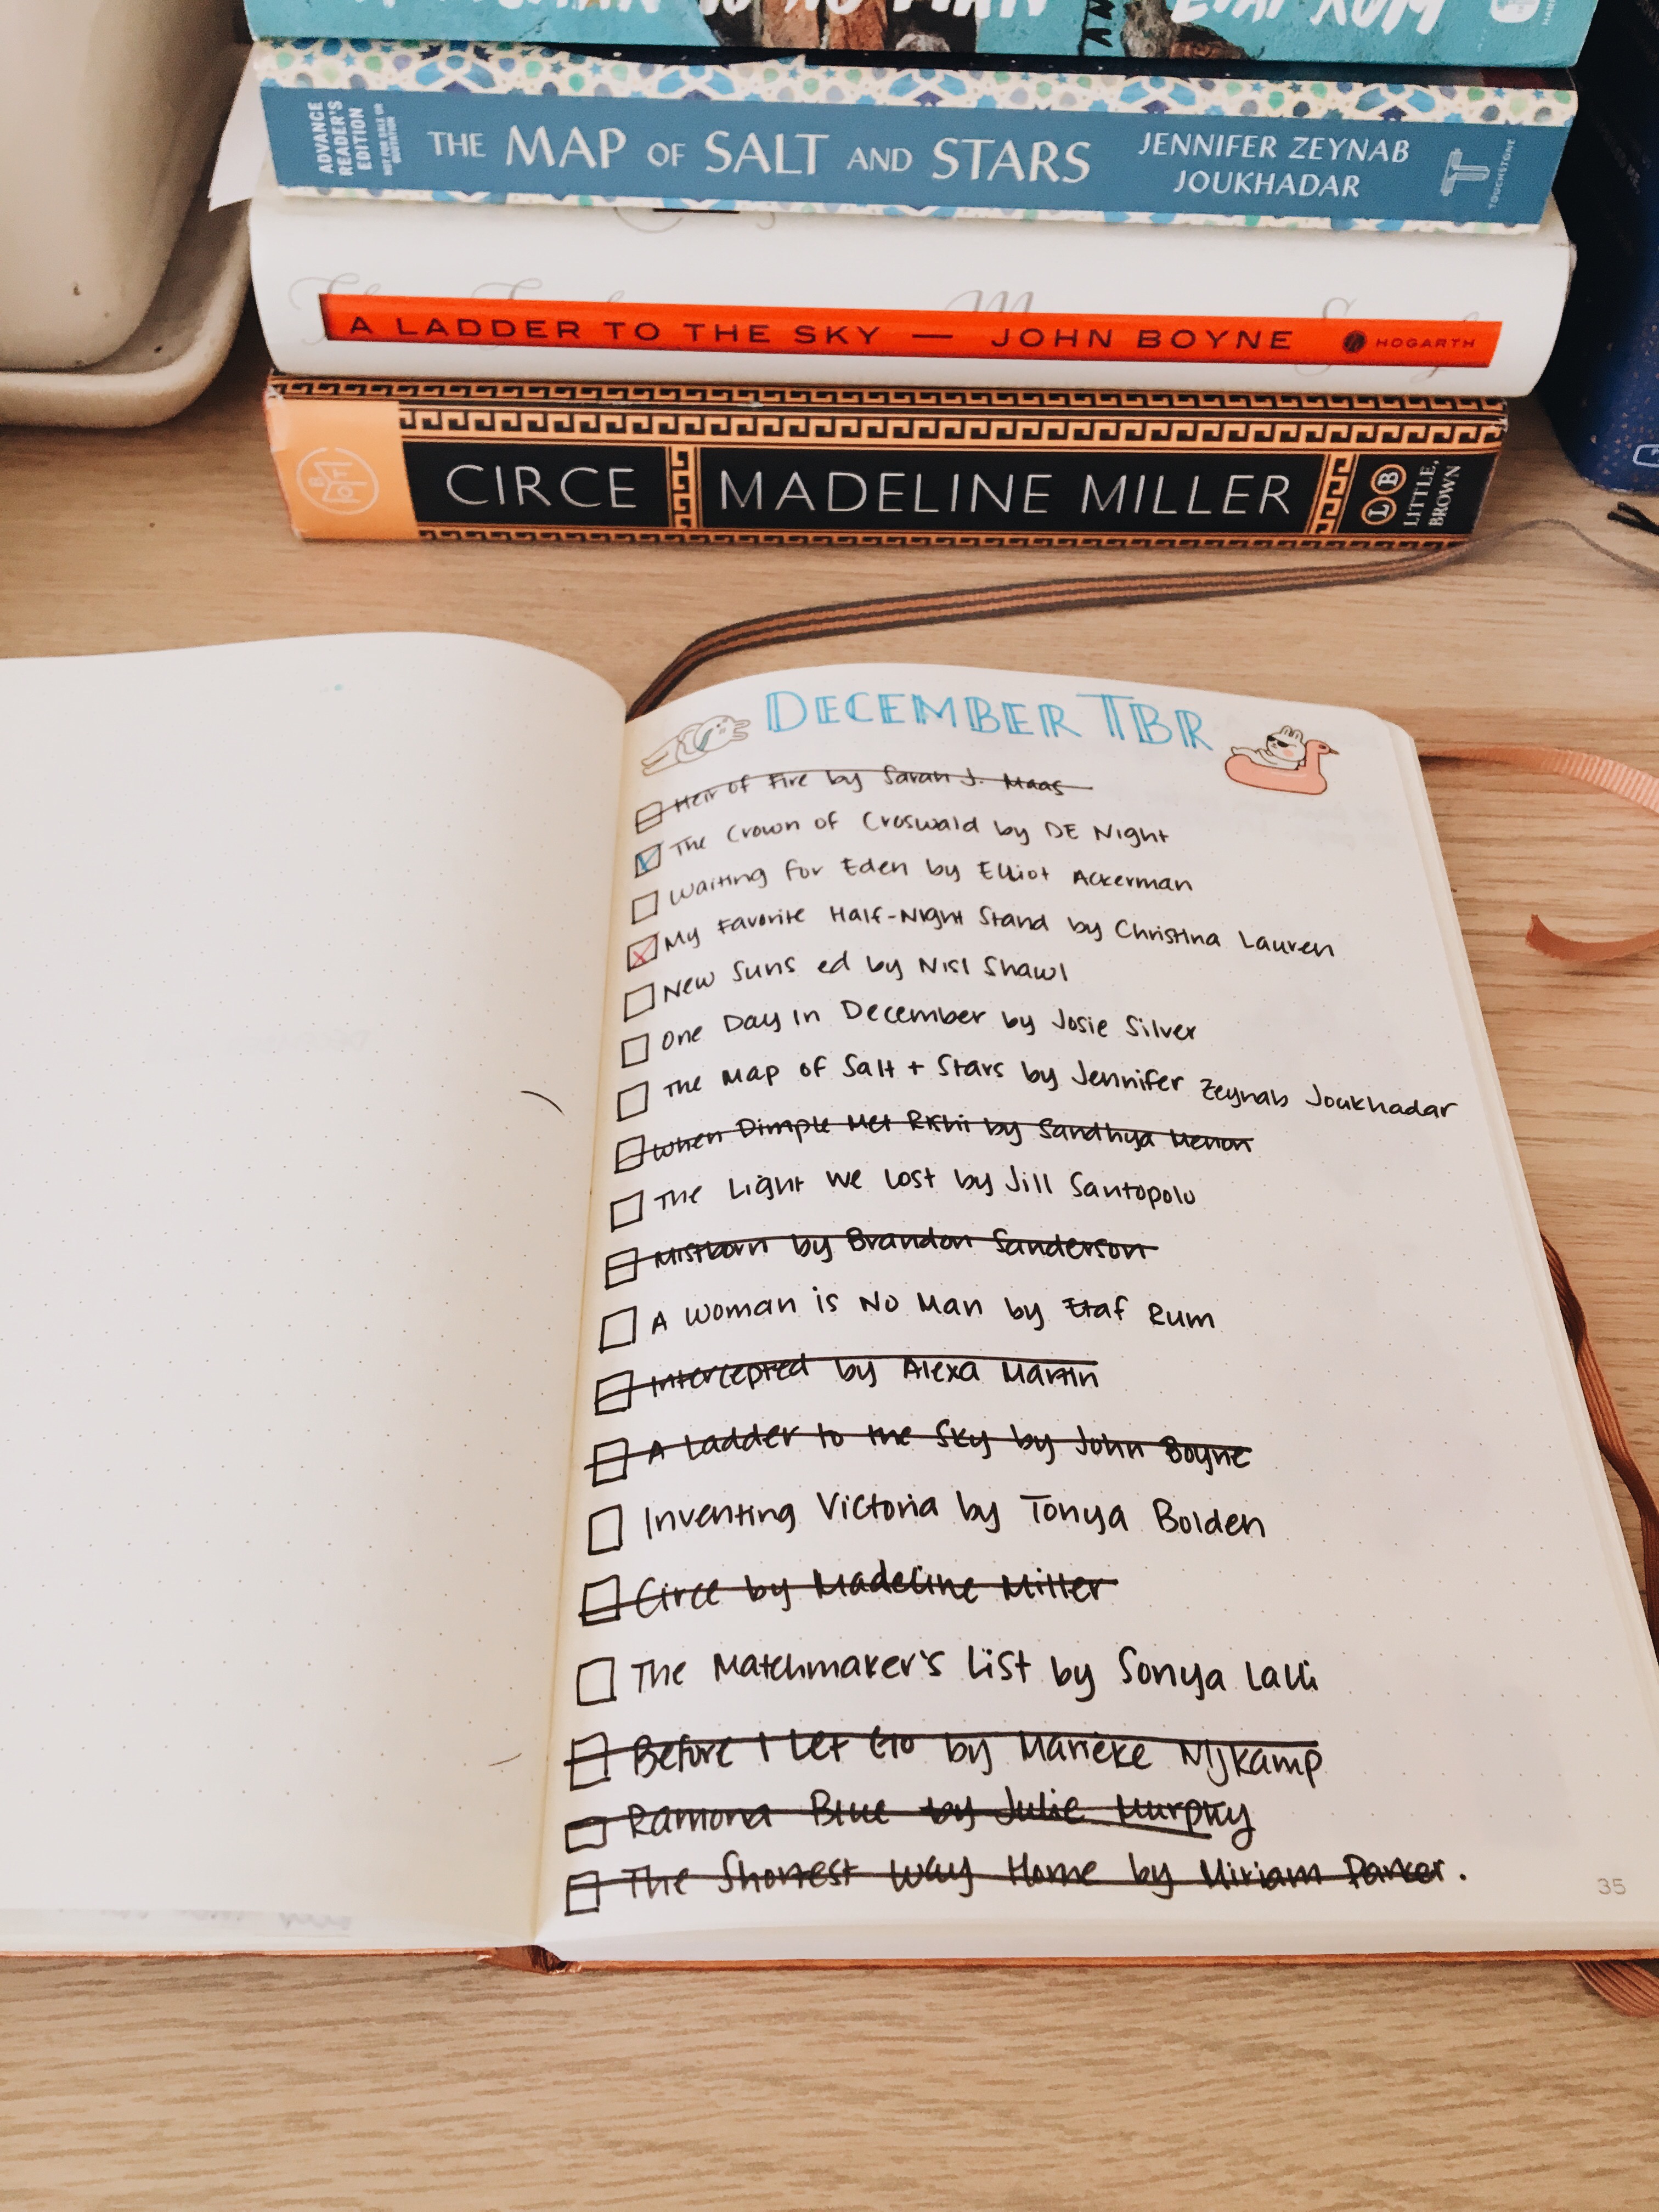 ETAF RUM
ADVANCE
READER'S
EDITION
NOT FOR SALE OR
QUOTATION
THE MAP OF SALT AND STARS
JENNIFER ZEYNAB
JOUKHADAR
TOUCHSTONE
A LADDER TO THE SKY — JOHN BOYNE
HOGARTH
BOTM
CIRCE
MADELINE MILLER
LB
LITTLE,
BROWN
DECEMBER TBR
Heir of Fire by Sarah J. Maas
The Crown of Croswald by DE Night
Waiting for Eden by Elliot Ackerman
My Favorite Half-Night Stand by Christina Lauren
New Suns ed by Nisi Shawl
One Day in December by Josie Silver
The Map of Salt + Stars by Jennifer Zeynab Joukhadar
When Dimple Met Rishi by Sandhya Menon
The Light We Lost by Jill Santopolo
Mistborn by Brandon Sanderson
A Woman is No Man by Etaf Rum
Intercepted by Alexa Martin
A Ladder to the Sky by John Boyne
Inventing Victoria by Tonya Bolden
Circe by Madeline Miller
The Matchmaker's List by Sonya Lalli
Before I Let Go by Marieke Nijkamp
Ramona Blue by Julie Murphy
The Shortest Way Home by Miriam Parker.
35